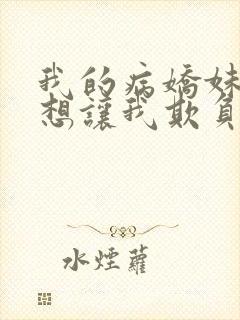 我的病嬌妹
想讓我欺負
水煙蘿